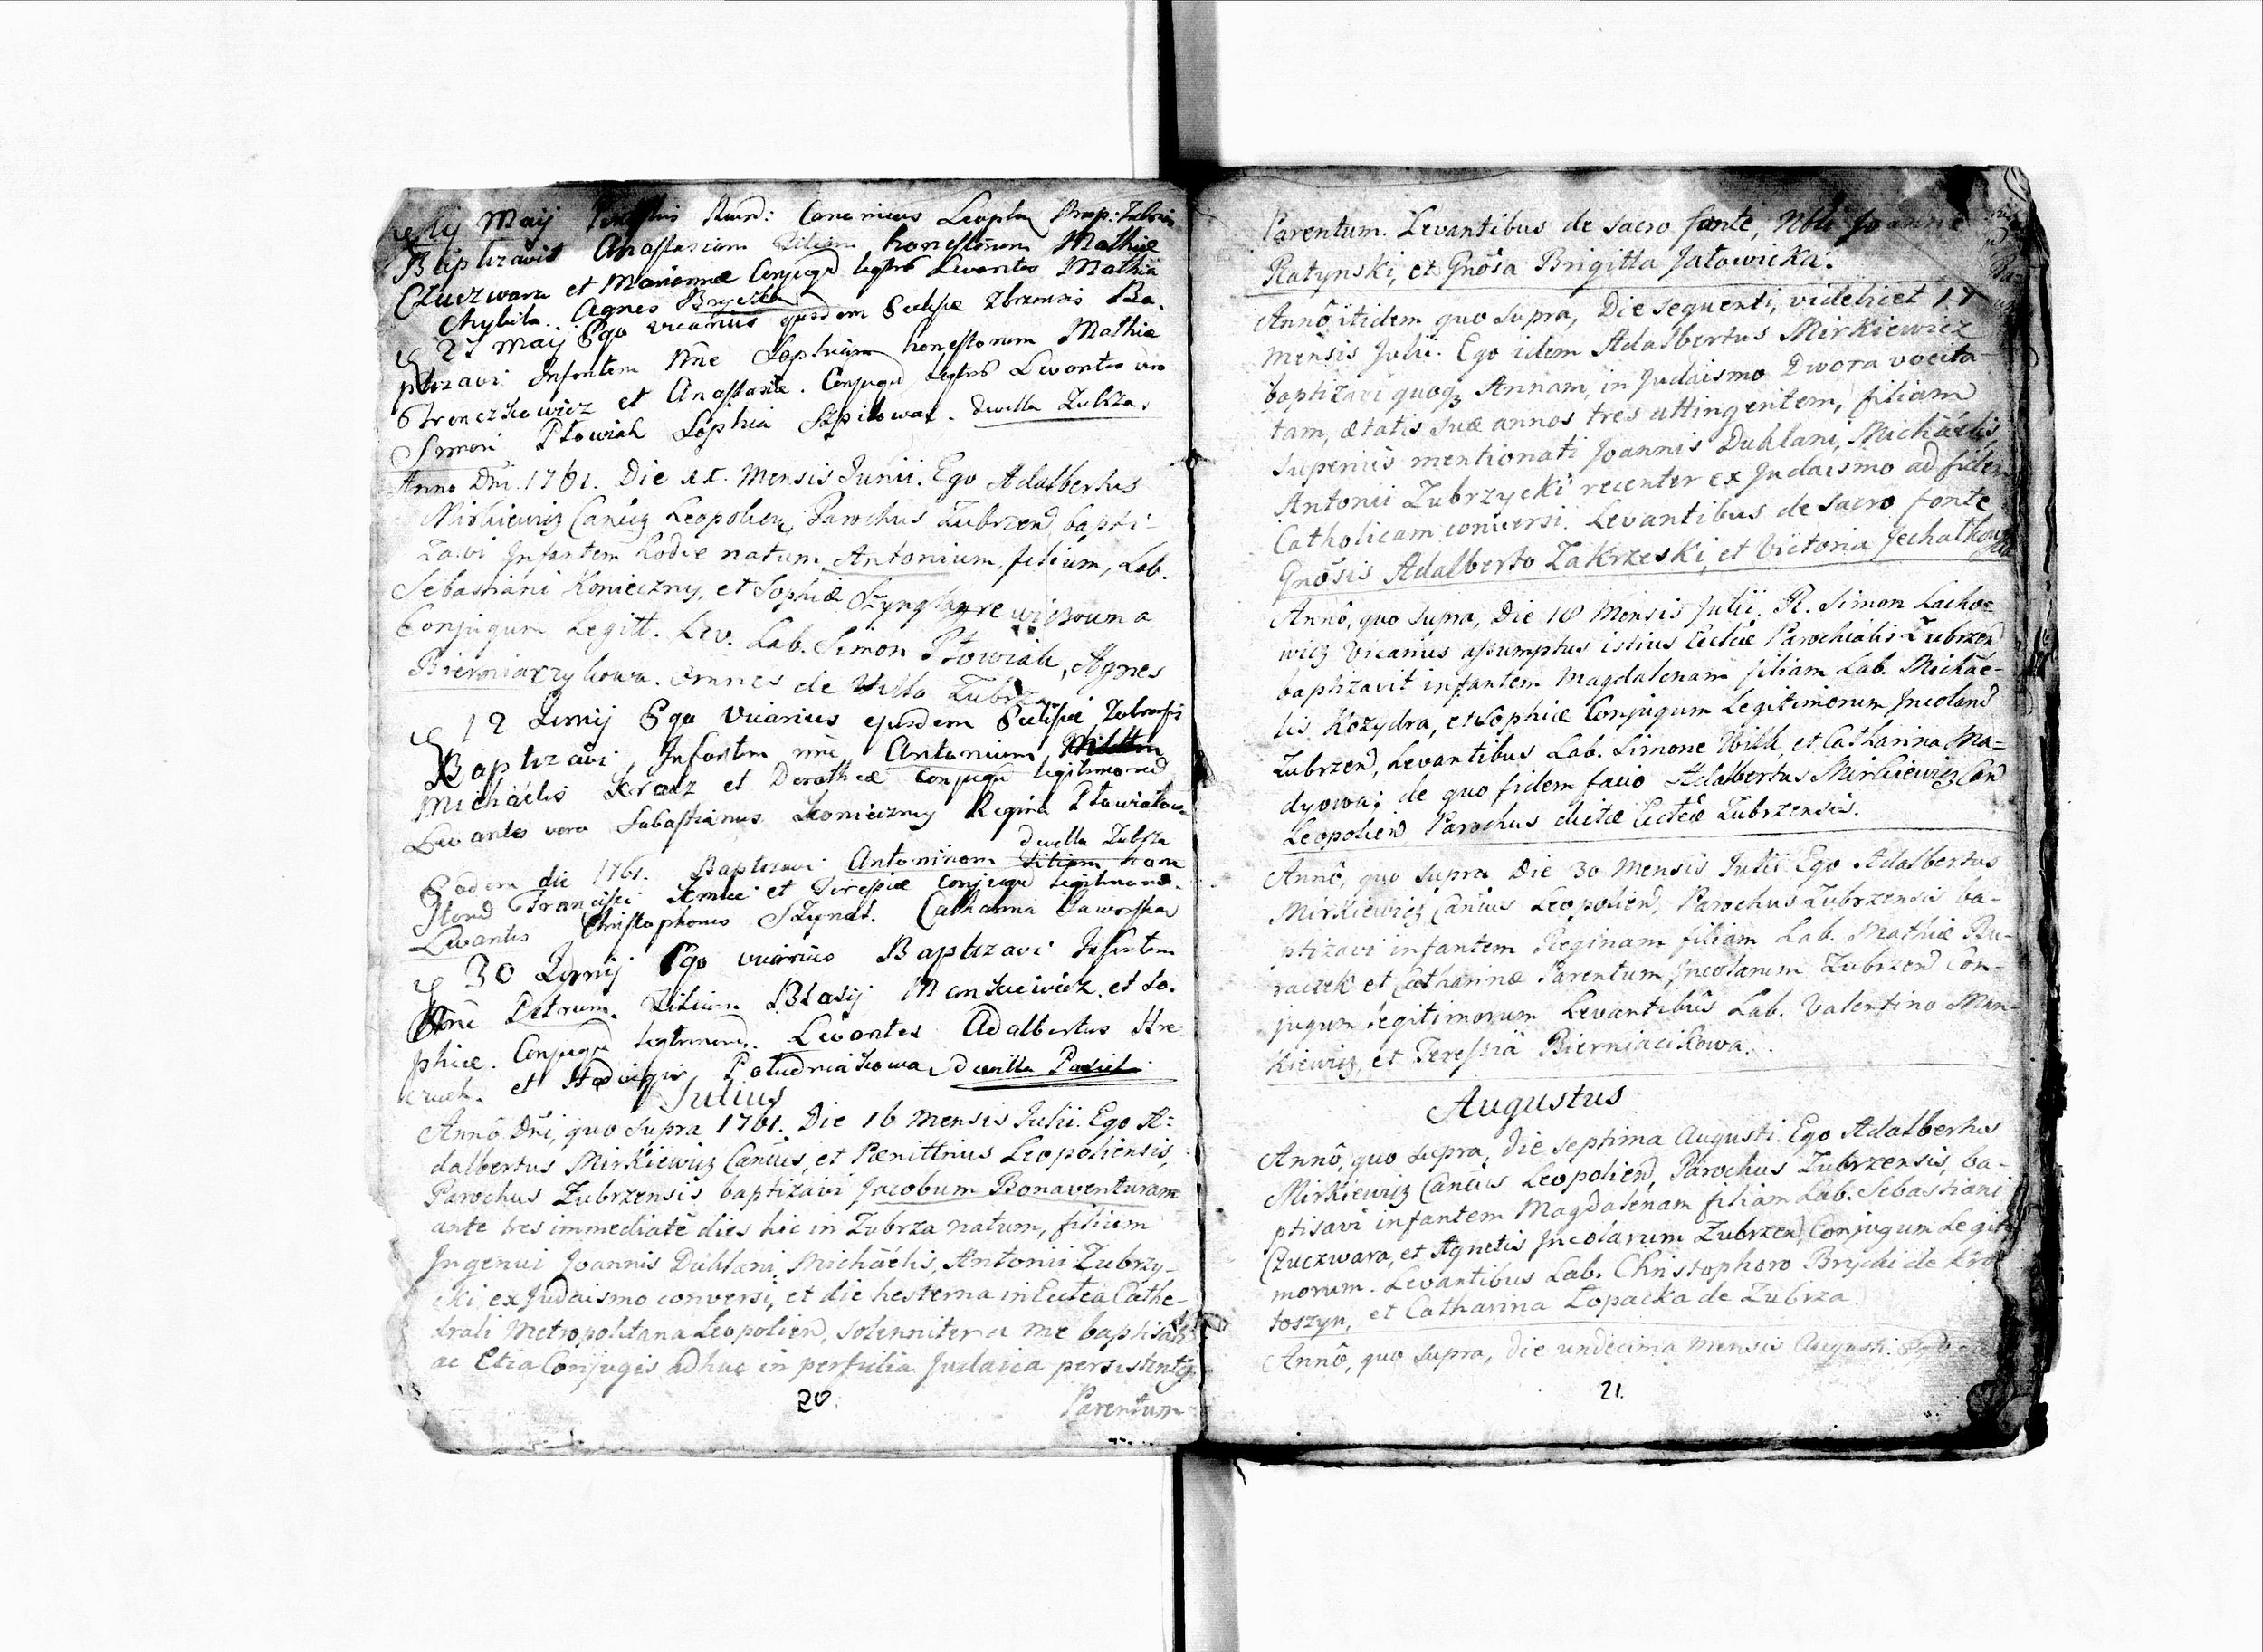 Maij Rnd: Canonicus Leopln Prap: Zubrn
Baptizavit Anastasiam Filiam honestorum Mathiæ
Czuczwara et Mariannæ Conjugu legtmo Levantes Mathia
Chybila. Agnes Bryczka
27 Maij Ego vicarius ejusdem Eclisiæ Zbrzensis Ba-
ptizavi Infantem nne Sophiam honestorum Mathiæ
Frenczkowicz et Anastasiæ. Conjugu Legtmo Levantes vero
Simon Ptowiak Sophia Szpitowa. de villa Zubrza.
Anno Dni. 1761. Die Mensis Junii. Ego Adalbertus
Mirkiewicz Canicq Leopolien, Parochus Zubrzen bapti-
zavi Infantem hodie natum Antonium, filium, Lab.
Sebastiani Konieczny, et Sophiæ
Conjugum Legitt. Lev. Lab. Simon Ptowiak, Agnes
Bierniaczykowa. Omnes de Villa Zubrza
12 Junij Ego Vicarius ejusdem Eclisiæ Zubrensis
Baptizavi, Infantem nne Antonium
Michäelis Kraiz et Dorotheæ conjugu legitimorud
Levantes vero Sabastianus Konieczny Regina Ptowiakow
de villa Zubrza
Eadem die 1761. Baptizavi Antoninam Filiam hone
storud Francisci et Teresiæ conjugu legitimorud.
Levantes Christophorus Szynal. Catharina Jaworska
30 Junij Ego vicarius Baptizavi Infantem
nne Petrum. Filium Blasij Mankiewicz. et So-
phiæ. Conjugu legtimorud. Levantes Adalbertus Kre
et Hedvigis Poludniakowa de villa Pasiek
Julius
Annô Dñi, quo supra 1761. Die 16 Mensis Julii. Ego A-
dalbertus Mirkiewicz Canc͂us, et Pænittrius Leopoliensis,
Parochus Zubrzensis baptizavi Jacobum Bonaventuram
ante tres immediatè dies hic in Zubrza natum, filium
Ingenui Joannis Dúklani, Michäelis, Antonii Zubrzy-
cki, ex Judaismo conversi, et die hesterna in Ecctea Cathe-
drali Metropolitana Leopolien, solenniter a me baptisati
ac Etia Conjugis adhuc in perfidia Judaica persistentis
20.
Parentum
Parentum. Levantibus de sacro fonte, Nbli Joanne
Ratynski, et Gnôsa Brigitta Jatowicka.
Annô itidem quo supra, Die sequenti, videlicet 17
mensis Julii. Ego idem Adalbertus Mirkiewicz
baptizavi quoq, Annam, in Judaismo Dwora vocita-
tam, ætatis suæ annos tres attingentem, filiam
superius mentionati Joannis Duklani, Michäelis,
Antonii Zubrzycki recenter ex Judaismo ad fidem
Catholicam conversi. Levantibus de sacro fonte,
Gnôsis Adalberto Zakrzeski, et Victoria
Annô, quo supra, Die 18 Mensis Julii. R. Simon Lacho-
wicz Vicarius assumptus istius Eccliæ Parochialis Zubrzen
baptizavit infantem Magdalenam filiam Lab. Michäe-
lis Kozydra, et Sophiæ Conjugum Legitimorum Incoland
Zubrzend, Levantibus Lab. Simone Wilk et Catharina Ma-
dyowa; de quo fidem facio Adalbertus Mirkiewicz Can
Leopolien Parochus dictæ Eccteæ Zubrzensis.
Annô, quo supra Die 30 Mensis Julii Ego Adalbertus
Mirkiewicz Cancius Leopolien, Parochus Zubrzensis ba-
ptizavi infantem Reginam filiam Lab. Mathiæ Bu-
raczek et Catharinæ Parentum, Incolarum Zubrzen Con-
jugum legitimorum Levantibus Lab. Valentino Man-
kiewicz, et Teressia Bierniacikowa.
Augustus
Annô, quo supra, die septima Augusti. Ego Adalbertus
Mirkiewicz Cancius Leopolien, Parochus Zubrzensis, ba-
ptisavi infantem Magdalenam filiam Lab. Sebastiani
Czuczwara, et Agnetis Incolarum Zubrzen, Conjugum Legiti
morum. Levantibus Lab. Christophoro Brycki de Kro
toszyn, et Catharina Lopacka de Zubrza.
Annô, quo supra, die undecima mensis Augusti.
21.